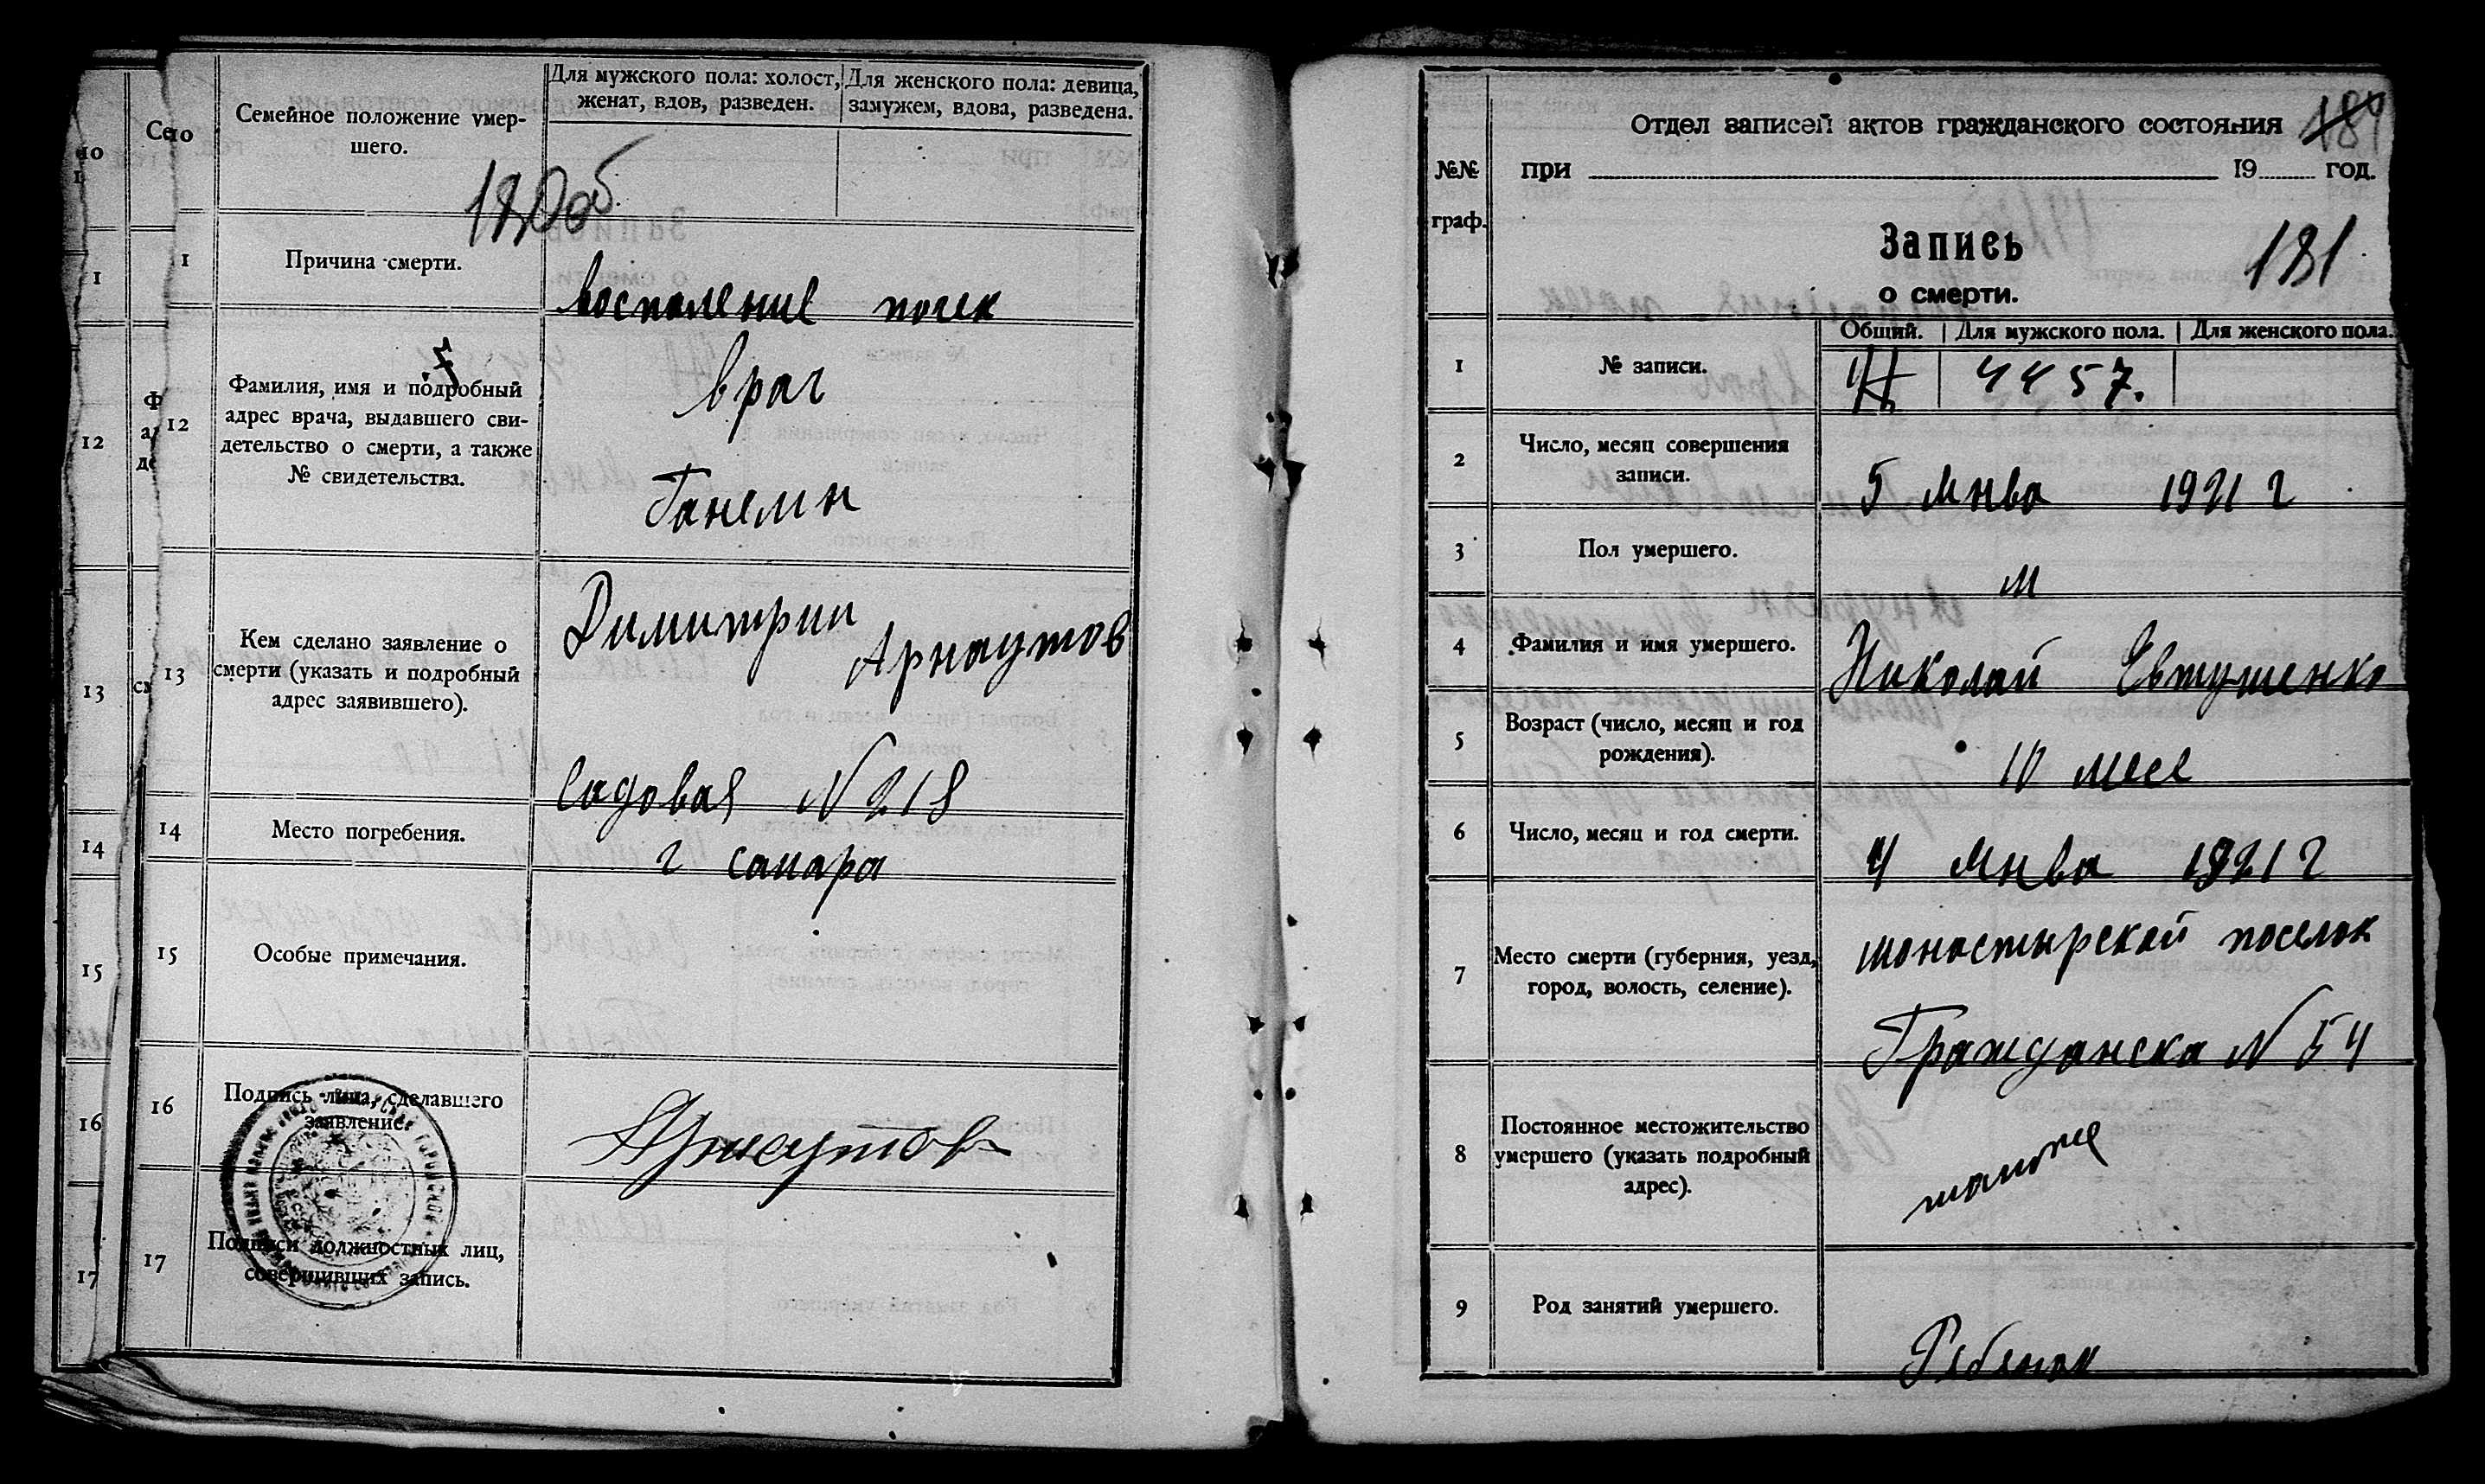 Семейное положение умер-
шего.
Для мужского пола: холост,
женат, вдов, разведен.
Для женского пола: девица,
замужем, вдова, разведена.
180об
11
Причина смерти.
воспаление почек
12
Фамилия, имя и подробный
адрес врача, выдавшего сви-
детельство о смерти, а также
№ свидетельства.
врач
13
Кем сделано заявление о
смерти (указать и подробный
адрес заявившего).
Димитрии
Арнаутов
Садовая N 218
14
Место погребения.
г самара
15
Особые примечания.
16
Подпись лица, сделавшего
заявление.
Арнаутов
17
Подписи должностных лиц,
совершивших запись.
№№
граф.
Отдел записей актов гражданского состояния
при 19 год.
Запись
о смерти.
181
Общий. Для мужского пола. Для женского пола.
1
№ записи.
4457.
2
Число, месяц совершения
записи.
5 Янва 1921 г
3
Пол умершего.
м
4
Фамилия и имя умершего.
Николай Евтушенко
5
Возраст (число, месяц и год
рождения).
10 мес
6
Число, месяц и год смерти.
4 Янва 1921 г
7
Место смерти (губерния, уезд,
город, волость, селение).
монастырской поселок
Гражданска N 54
8
Постоянное местожительство
умершего (указать подробный
адрес).
тамже
9
Род занятий умершего.
Ребенок